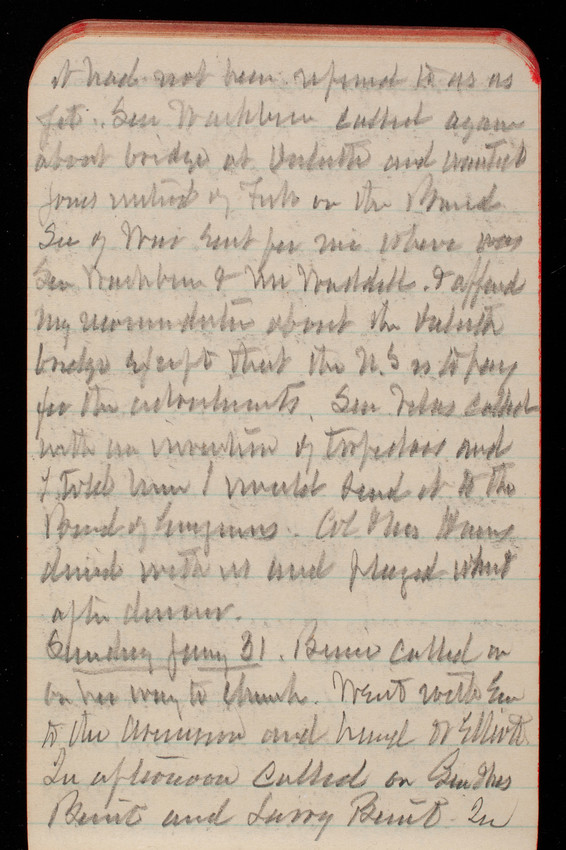 it had not been refered to us as
yet. Sen Washburn called again
about bridge at Duluth and wanted
Jones instead of on the Board
Sec of War sent for me where was
Sen Washburn & Mr Waddill. I
my about the Duluth
bridge except that the U.S is to pay
for the abutments. Sen Vilas called
with an invention of torpedoes and
I told him I would send it to the
Board of Engineers. Col
dined with us and played whist
after dinner.
Sunday Jany 31. called on
on her way to church. Went with Em
to the Ascension and heard Dr Elliott
In afternoon called on Gen
Benet and Larry Benet. In